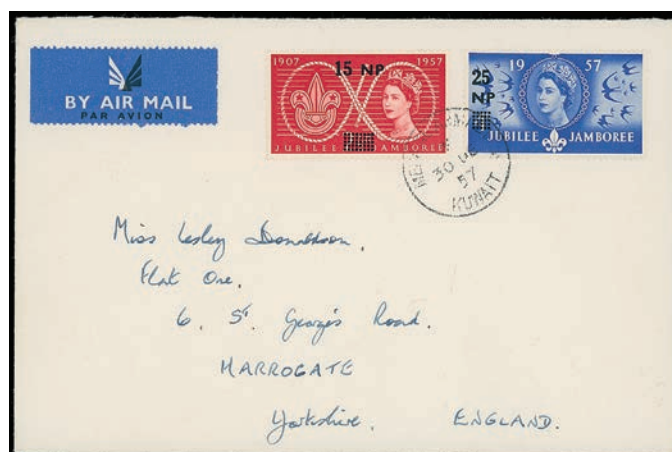 BY AIR MAIL
PAR AVION
1907 1957
15 NP
JUBILEE JAMBOREE
1957
25
NP
JUBILEE JAMBOREE
30
57
KUWAIT
Miss Lesley Donaldson.
Flat One.
6. St. George's Road.
HARROGATE
Yorkshire. ENGLAND.